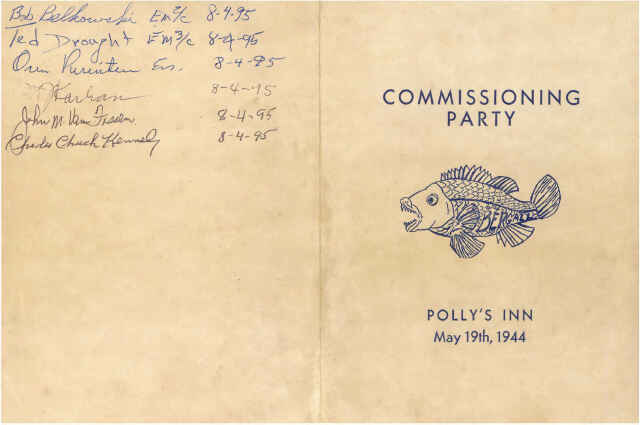 Bob Belkowski EM2/c 8-4-95
Ted Drought EM3/c 8-4-95
Orin 8-4-95
8-4-95
John M. Van 8-4-95
Charles Chuck Kennedy 8-4-95
COMMISSIONING
PARTY
POLLY'S INN
May 19th, 1944